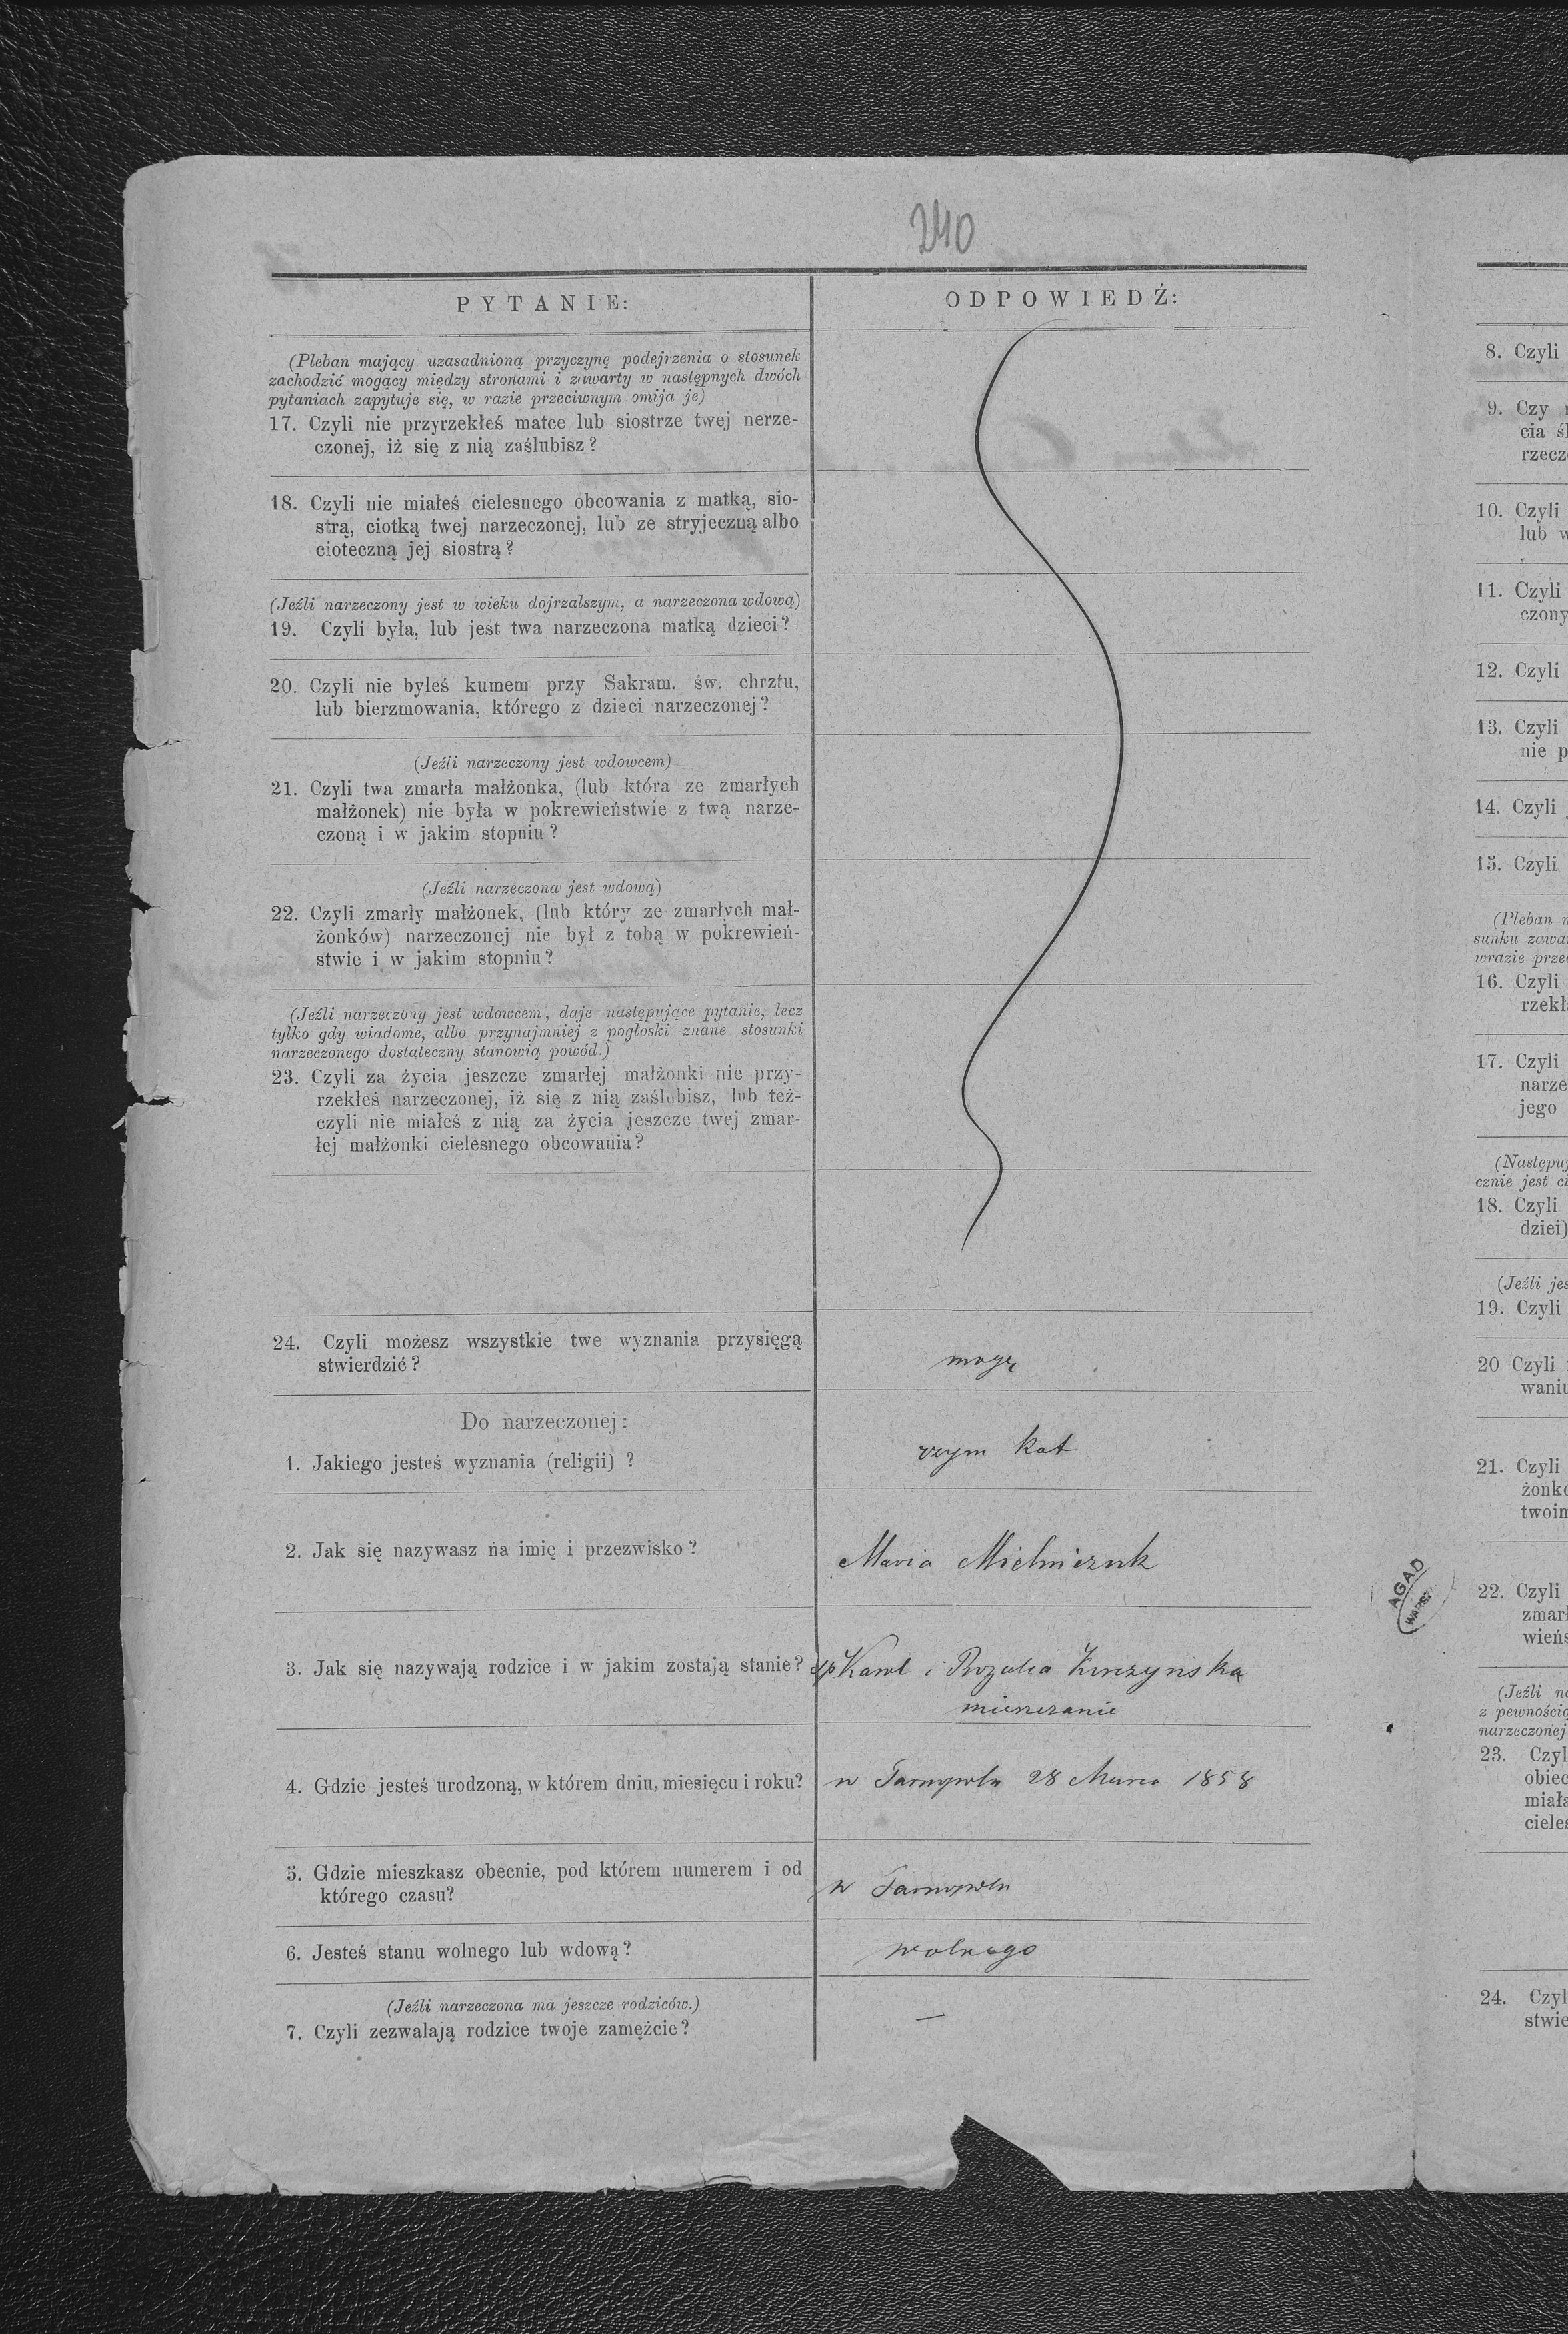 240
PYTANIE:
ODPOWIEDŹ:
(Pleban mający uzasadnioną przyczynę podejrzenia o stosunek
zachodzić mogący między stronami i zawarty w następnych dwóch
pytaniach zapytuje się, w razie przeciwnym omija je)
17. Czyli nie przyrzekłeś matce lub siostrze twej nerze-
czonej, iż się z nią zaślubisz?
18. Czyli nie miałeś cielesnego obcowania z matką, sio-
strą, ciotką twej narzeczonej, lub ze stryjeczną albo
cioteczną jej siostrą?
(Jeźli narzeczony jest w wieku dojrzalszym, a narzeczona wdową)
19. Czyli była, lub jest twa narzeczona matką dzieci?
20. Czyli nie byłeś kumem przy Sakram. św. chrztu,
lub bierzmowania, którego z dzieci narzeczonej?
(Jeźli narzeczony jest wdowcem)
21. Czyli twa zmarła małżonka, (lub która ze zmarłych
małżonek) nie była w pokrewieństwie z twą narze-
czoną i w jakim stopniu?
(Jeźli narzeczona jest wdową)
22. Czyli zmarły małżonek, (lub który ze zmarłych mał-
żonków) narzeczonej nie był z tobą w pokrewień-
stwie i w jakim stopniu?
(Jeźli narzeczony jest wdowcem, daje następujące pytanie, lecz
tylko gdy wiadome, albo przynajmniej z pogłoski znane stosunki
narzeczonego dostateczny stanowią powód.)
23. Czyli za życia jeszcze zmarłej małżonki nie przy-
rzekłeś narzeczonej, iż się z nią zaślubisz, lub też-
czyli nie miałeś z nią za życia jeszcze twej zmar-
łej małżonki cielesnego obcowania?
24. Czyli możesz wszystkie twe wyznania przysięgą
stwierdzić?
mogę
Do narzeczonej:
1. Jakiego jesteś wyznania (religii) ?
rzym kat
2. Jak się nazywasz na imię i przezwisko?
Maria Mielniczuk
3. Jak się nazywają rodzice i w jakim zostają stanie?
Karol i Rozalia
mieszczanie
4. Gdzie jesteś urodzoną, w którem dniu, miesięcu i roku?
w Tarnopolu 28 Marca 1858
5. Gdzie mieszkasz obecnie, pod którem numerem i od
którego czasu?
w Tarnopolu
6. Jesteś stanu wolnego lub wdową?
wolnego
(Jeźli narzeczona ma jeszcze rodziców.)
7. Czyli zezwalają rodzice twoje zamężcie?
—
8. Czyli
9. Czy
cia
rzecz
10. Czyli
lub w
11. Czyli
czony
12. Czyli
13. Czyli
nie p
14. Czyli
15. Czyli
(Pleban
sunku zawa
wrazie prze
16. Czyli
rzekł
17. Czyli
narze
jego
(Następuj
cznie jest
18. Czyli
dziei)
(Jeźli jes
19. Czyli
20 Czyli
waniu
21. Czyli
żonk
twoim
AGAD
22. Czyli
zmarł
wieńs
(Jeźli
z pewności
narzeczonej
23. Czyl
obiec
miała
cieles
24. Czyl
stwie